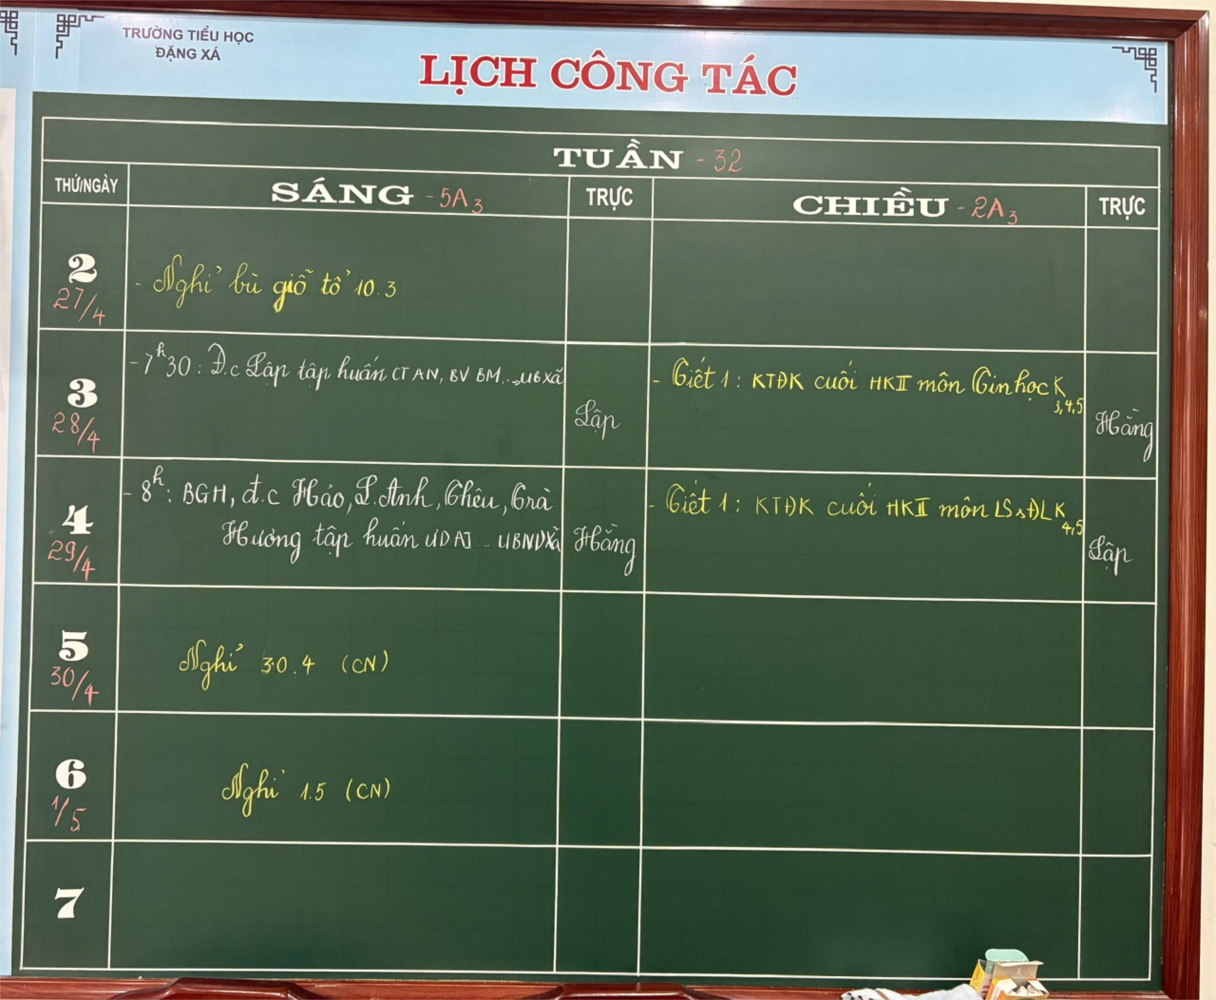 TRƯỜNG TIỂU HỌC
ĐẶNG XÁ
LỊCH CÔNG TÁC
TUẦN - 32
THỨ/NGÀY
SÁNG - 5A3
TRỰC
CHIỀU - 2A3
TRỰC
2
27/4
- Nghỉ bù giỗ tổ 10.3
3
28/4
- 7h30: Đ.c Lập tập huấn CT AN, BV BM... UB xã
Lập
- Tiết 1: KTĐK cuối HKII môn Tin học K
3,4,5
Hằng
4
29/4
- 8h: BGH, đ.c Hảo, L.Anh, Thêu, Trà
Hương tập huấn ƯDAI... UBND xã
Hằng
- Tiết 1: KTĐK cuối HKII môn LS^ĐL K
4,5
Lập
5
30/4
Nghỉ 30.4 (CN)
6
1/5
Nghỉ 1.5 (CN)
7